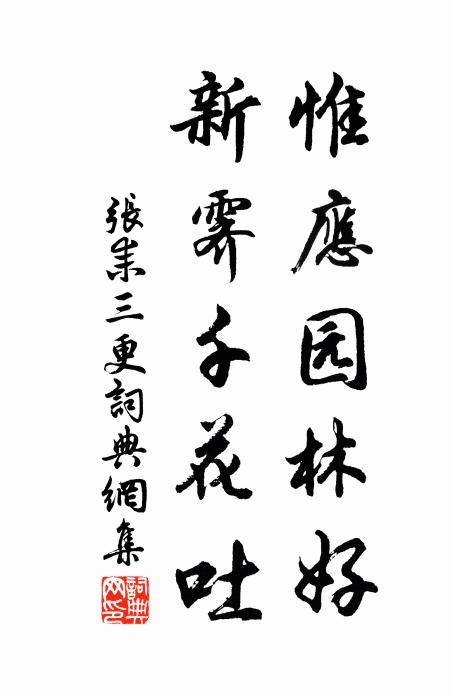 惟應园林好
新霽千花吐
張耒三更詞典網集
詞典網印